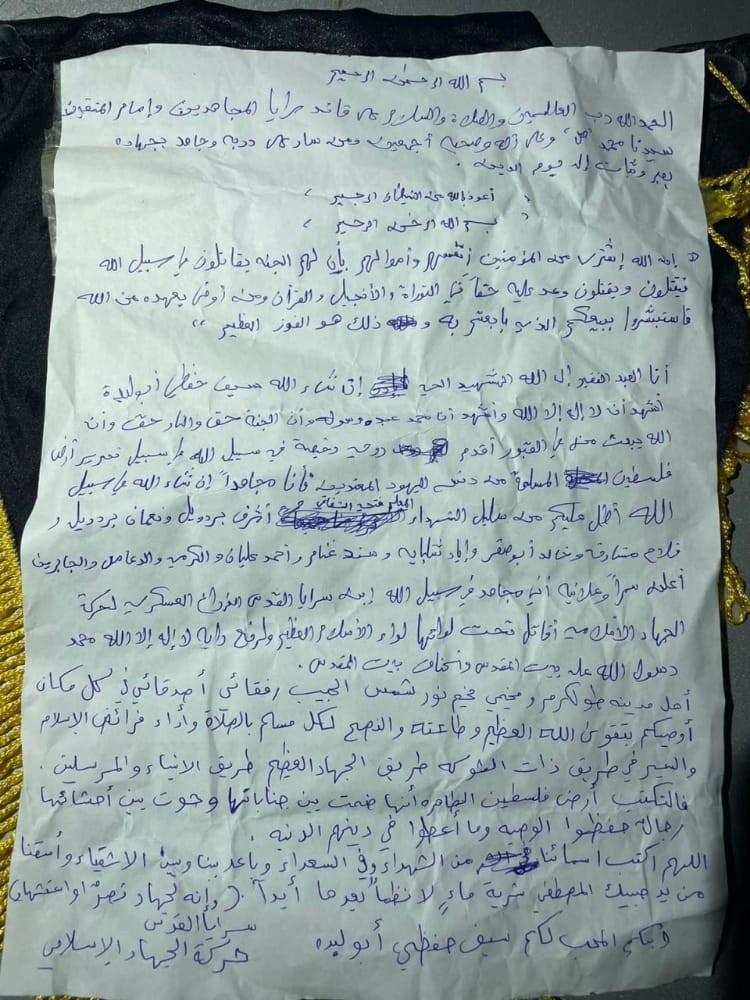 بسم الله الرحمن الرحيم
الحمد لله رب العالمين والصلاة والسلام على قائد سرايا المجاهدين وإمام المتقين
سيدنا محمد "ص" وعلى آله وصحبه أجمعين ومن سار على دربه وجاهد بجهاده
بصبر وثبات إلى يوم الدين .
أعوذ بالله من الشيطان الرجيم ،
بسم الله الرحمن الرحيم ،
" إن الله إشترى من المؤمنين أنفسهم وأموالهم بأن لهم الجنة يقاتلون في سبيل الله
فيقتلون ويقتلون وعد عليه حقاً في التوراة والأنجيل والقرأن ومن أوفى بعهده من الله
فاستبشروا ببيعكم الذي بايعتم به و ذلك هو الفوز العظيم "
أنا العبد الفقير إلى الله الشهيد الحي إن شاء الله سيف حفظي أبو لبدة
أشهد أن لا إله إلا الله وأشهد أن محمد عبده ورسوله وأن الجنة حق والنار حق وأن
الله يبعث من في القبور أقدم روحي رخيصة في سبيل الله في سبيل تحرير أرض
فلسطين المسلمة من دنس اليهود المعتدين فأنا مجاهداً إن شاء الله في سبيل
الله أطل عليكم من سليل الشهداء أشرف بردويل ونعمان بردويل و
فلاح مشارقة وخالد أبو صقر وإياد ومهند غنام وأحمد عليان و والدعامس والجابرين
أعلنه سراً وعلانية أنني مجاهد في سبيل الله إبن سرايا القدس الذراع العسكرية لحركة
الجهاد الإسلامي أقاتل تحت لوائها لواء الأسلام العظيم ولرفع راية لا إله إلا الله محمد
رسول الله على بيت المقدس وأكناف بيت المقدس .
أهل مدينة طولكرم ومخيمي مخيم نور شمس الحبيب رفقائي أصدقائي في كل مكان
أوصيكم بتقوى الله العظيم وطاعته والنصح لكل مسلم بالصلاة وأداء فرائض الإسلام
والسير في طريق ذات الشوكه طريق الجهاد العظيم طريق الانبياء والمرسلين .
فالتكتب أرض فلسطين الطاهره أنها ضمت بين جناباتها وحوت بين أحشائها
رجالاً حفظوا الوصيه وما أعطوا في دينهم الدنيه .
اللهم اكتب اسمائنا من الشهداء وفي السعداء وباعد بيننا وبين الاشقياء وأسقنا
من يد حبيبك المصطفى شربة ماءٍ لا نظمأ بعدها أبداً ( وإنه لجهاد نصرٌ او استشهاد
سرايا القدس
أبنكم المحب لكم سيف حفظي أبو لبده حركة الجهاد الإسلامي